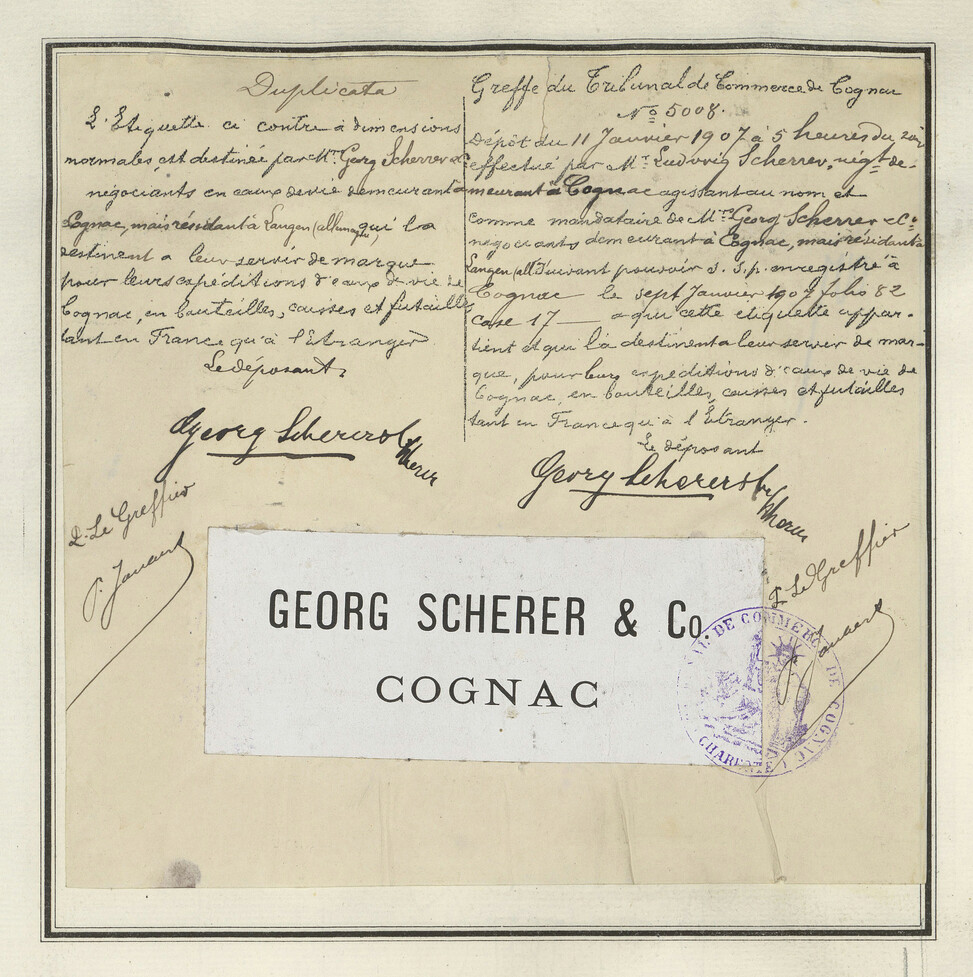 Duplicata
L'Etiquette ci contre à dimensions
normales est destinée par Mrs Georg Scherrer & Co
négociants en eaux de vie demeurant à
Cognac, mais résidant à Langen (allemagne) qui la
destinent a leur servir de marque
pour leurs expéditions d'eaux de vie de
Cognac, en bouteilles, caisses et futailles
tant en France qu'à l'Etranger
Le déposant,
Georg Scherer & Co
Scherer
P. Le Greffier
Greffe du Tribunal de Commerce de Cognac
No 5008.
Dépôt du 11 Janvier 1907 à 5 heures du soir
effectué par Mr Ludwig Scherrer, négt de-
meurant à Cognac agissant au nom et
comme mandataire de Mrs Georg Scherrer & Co
négociants demeurant à Cognac, mais résidant à
Langen (all.) suivant pouvoir s. s. p. enregistré à
Cognac le sept Janvier 1907 folio 82
case 17 — a qui cette etiquette appar-
tient et qui la destinent a leur servir de mar-
que, pour leurs expéditions d'eaux de vie de
Cognac, en bouteilles, caisses et futailles
tant en France qu'à l'Etranger.
Le déposant
Georg Scherer & Co
Scherer
P. Le Greffier
GEORG SCHERER & Co.
COGNAC
DE COMMERCE DE COGNAC
CHARENTE